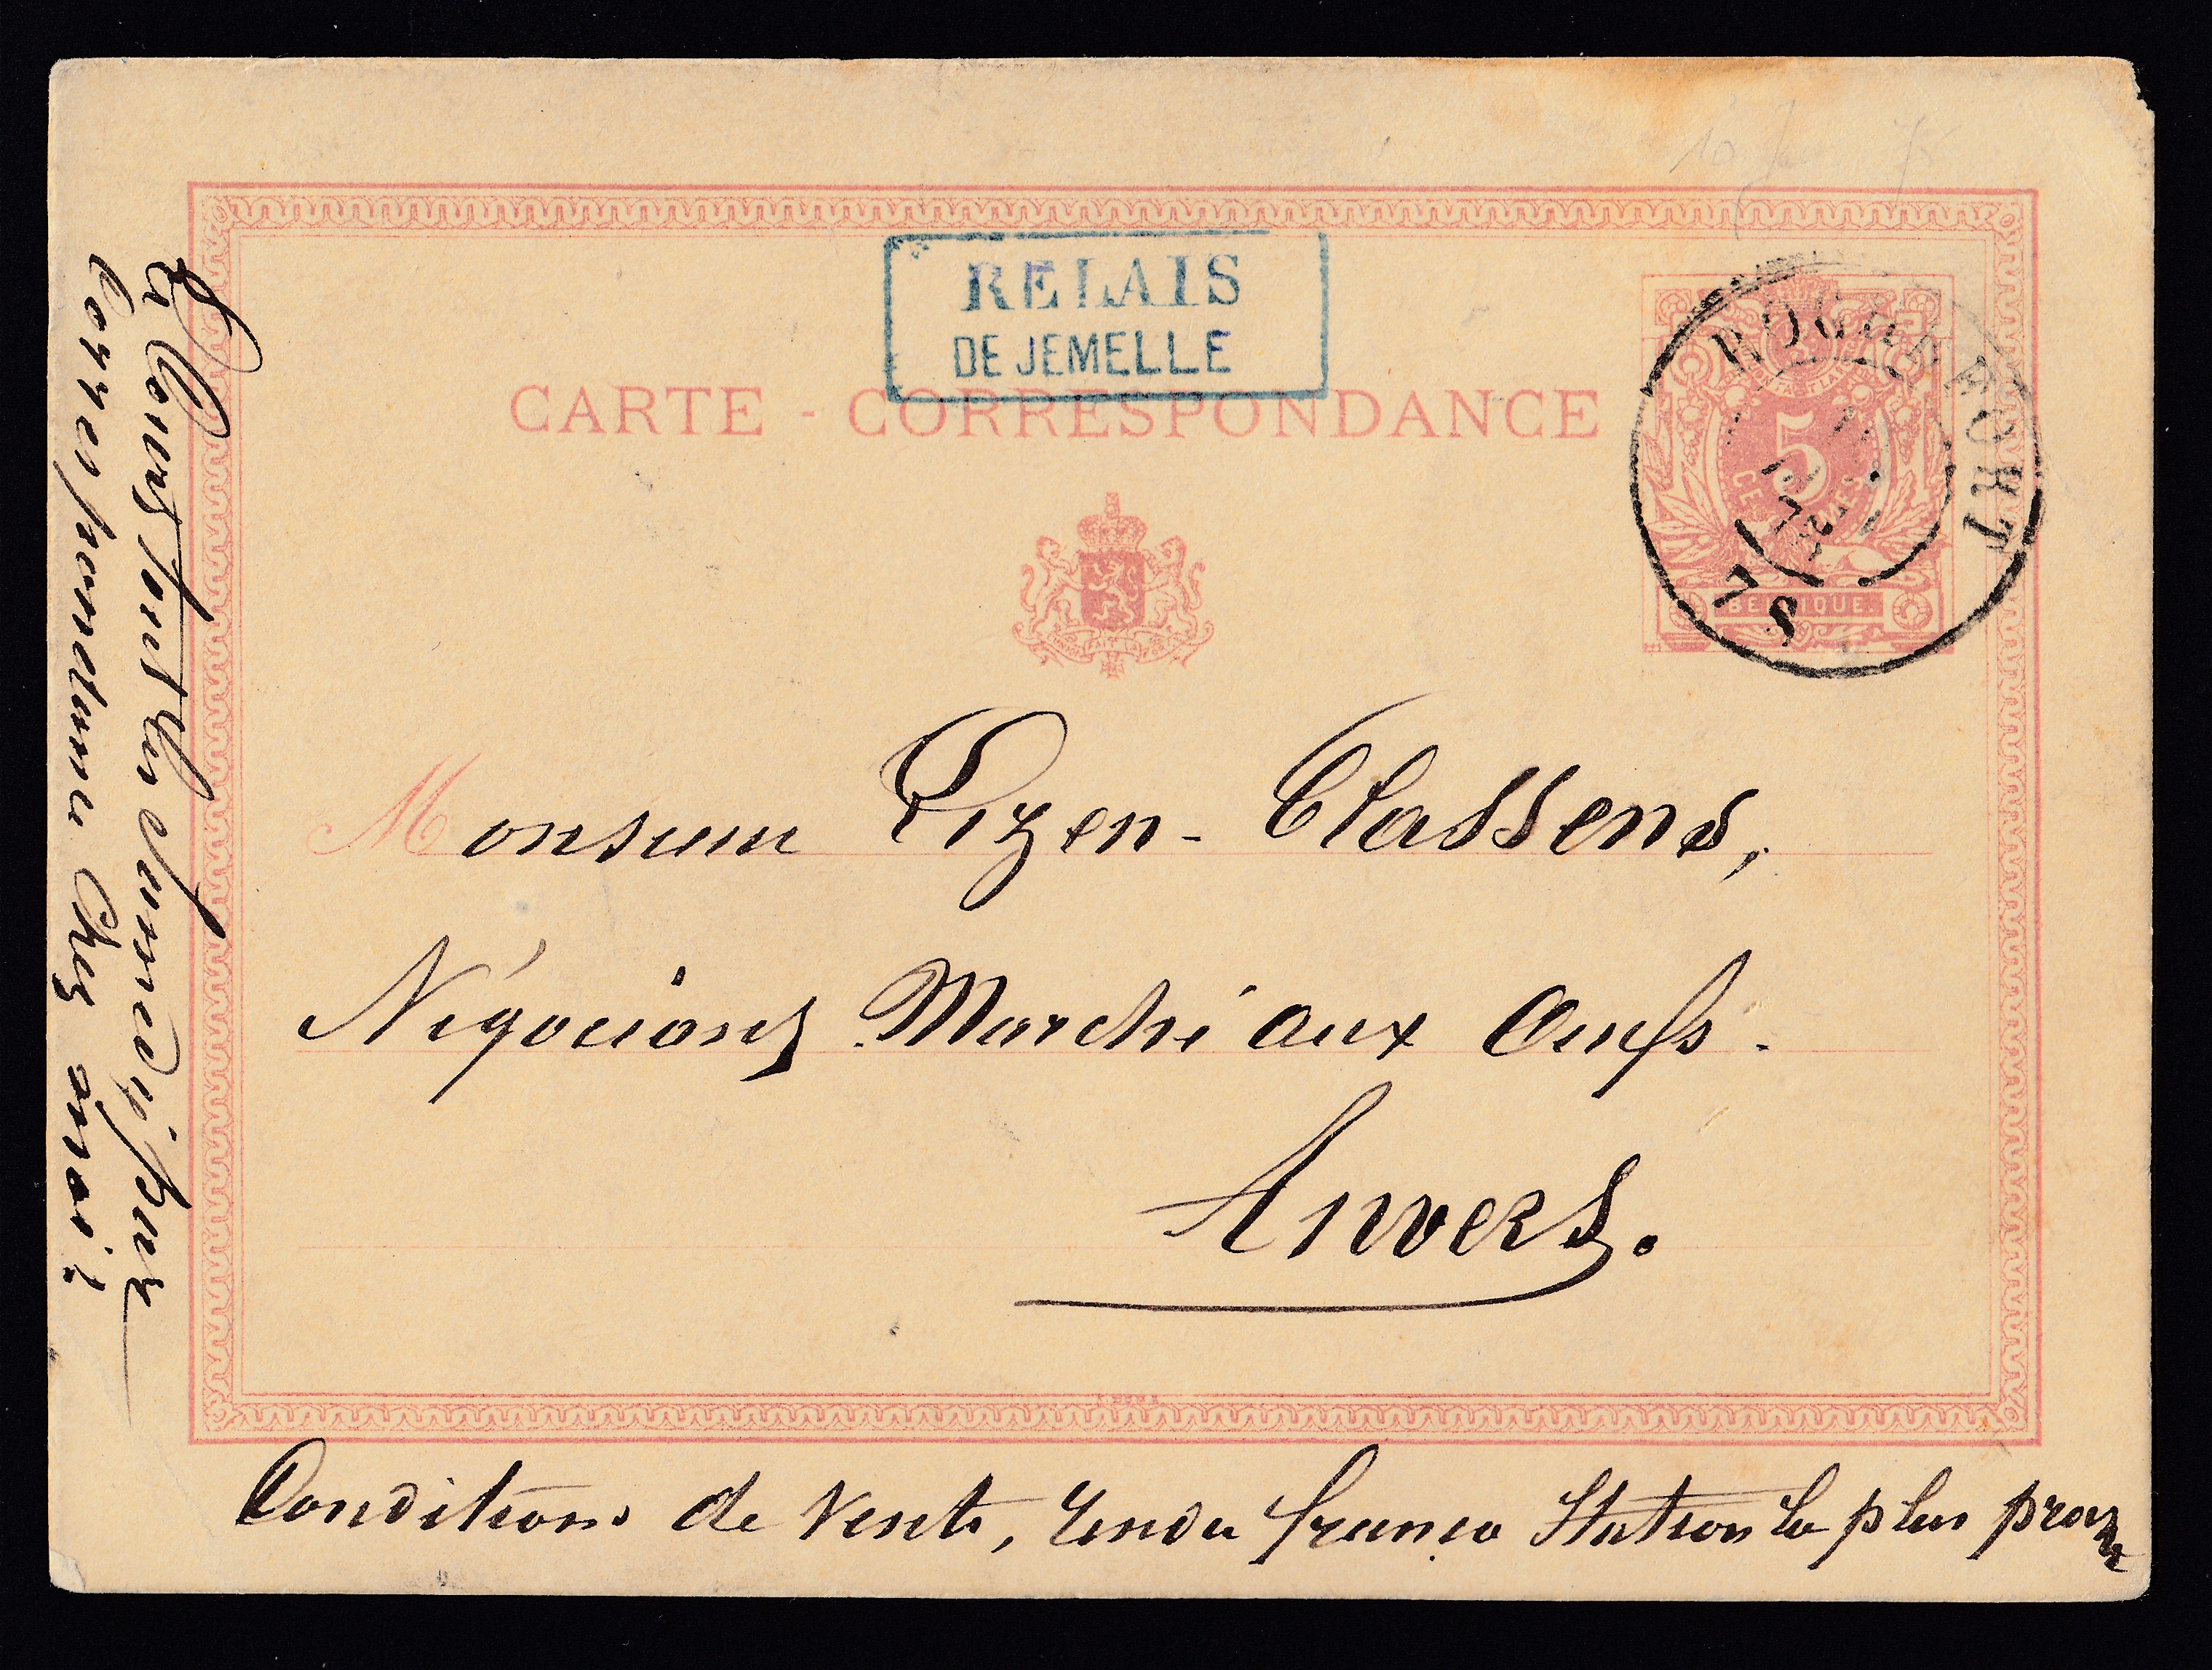 RELAIS
DE JEMELLE
CARTE - CORRESPONDANCE
ROCHEFORT
7 S
5
BELGIQUE
Monsieur Pizen-Classens,
Négociant Marché aux Oeufs.
Anvers.
Conditions de Vente, rendu franco Station la plus proche
correspondance chez moi!